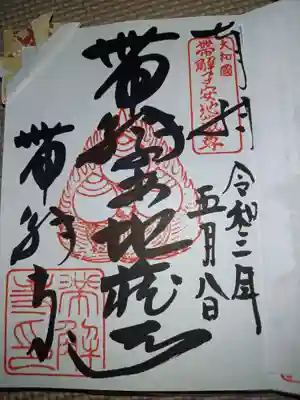 奉拝
大和國
帯解子安地蔵尊
令和三年
五月八日
帯解子安地蔵尊
帯解寺
帯解寺印